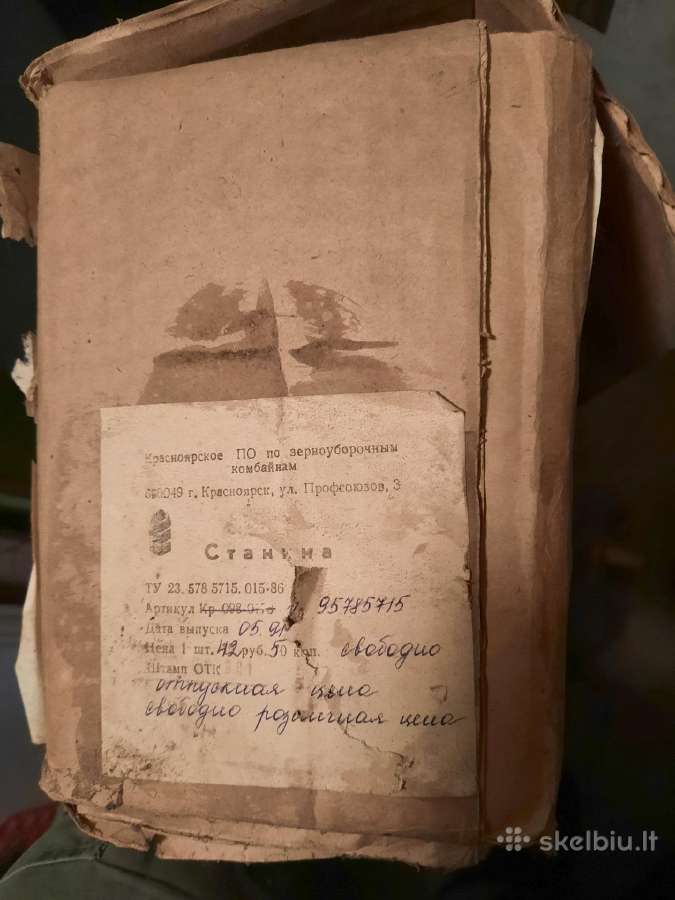 Красноярское ПО по зерноуборочным
комбайнам
660049 г. Красноярск, ул. Профсоюзов, 3
Станина
ТУ 23.578 5715.015-86
Артикул 95785715
Дата выпуска 05.91
Цена 1 шт. 42 руб. 50 коп. свободно
Штамп ОТК
отпускная цена
свободно розничная цена
skelbiu.lt